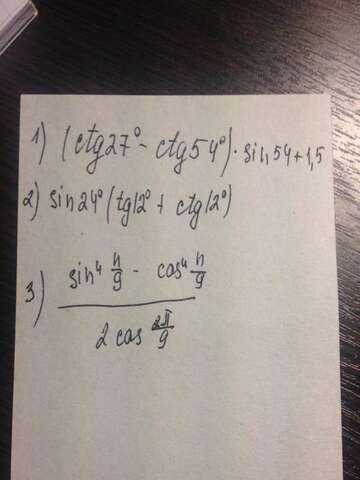 1) (ctg27° - ctg54°)·sin54+1,5
2) sin24° (tg12° + ctg12°)
3) (sin⁴ π/9 - cos⁴ π/9) / (2 cos 2π/9)